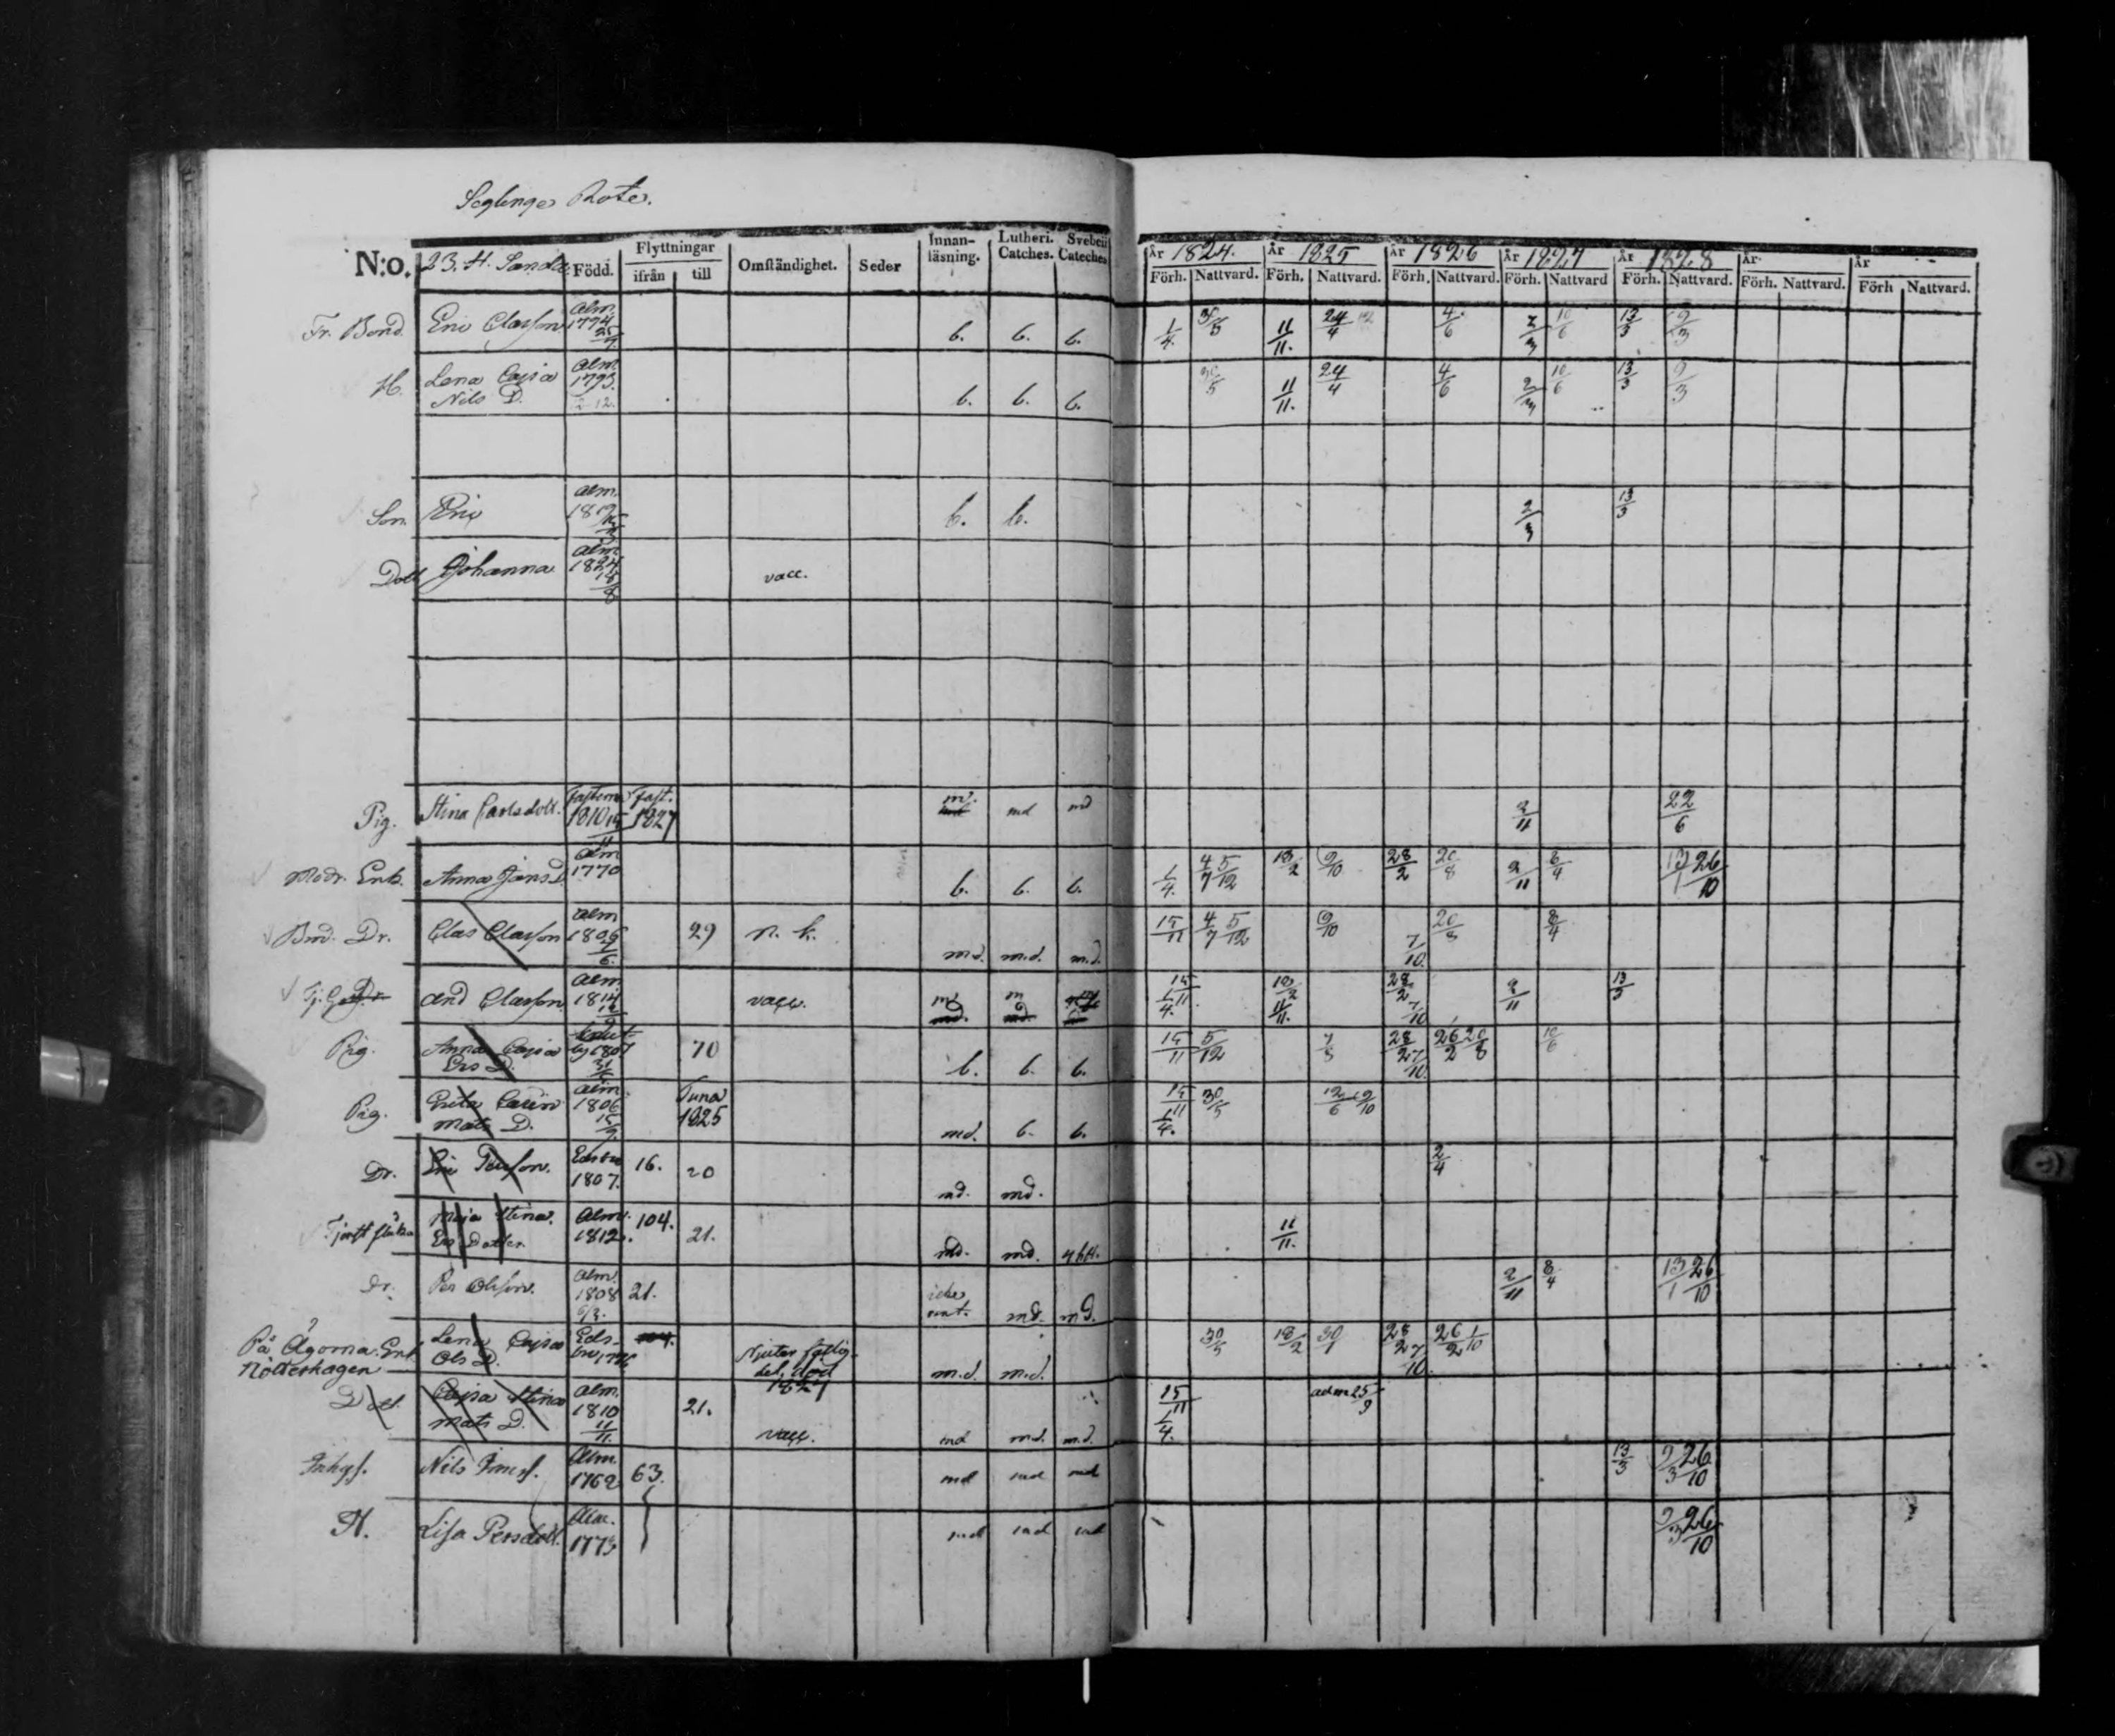 Rote.
N:o. 23. Född. Flyttningar ifrån till Omständighet. Seder Innan-läsning. Lutheri. Catches. Svebelii Cateches
År 1824. År 1825 År 1826 År 1827 År 1828 År År
Förh. Nattvard. Förh. Nattvard. Förh. Nattvard. Förh. Nattvard Förh. Nattvard. Förh. Nattvard. Förh Nattvard.
Fr. Bond. Eric Classon Alm. 1794 25/7 b. b. b. 1/4. 30/5 11/11. 24/4 4/6 2/3 10/6 13/3 9/3
H. Lena Cajsa Nils D. Alm. 1793. b. b. b. 30/5 11/11. 24/4 4/6 2/3 10/6 13/3 9/3
Son Eric Alm. b. b. 2/3 13/3
Dott Johanna Alm. 1824 18/8 vacc.
Pig. Stina Carlsdott. 1810 fast. 1827 md md 2/11 22/6
Modr. Enk. Anna Jans D. Alm 1770 b. b. b. 1/4. 4/7 5/12 18/2 9/10 28/2 20/8 2/11 8/4 13/1 26/10
Dr. Clas Classon Alm 1806 29 md. m.d. m.d. 15/11 4/7 5/12 9/10 7/10. 20/8 8/4
And Classon Alm. 1814 vacc. 15/11 1/4. 18/2 11/11. 28/2 7/10 2/11 13/3
Pig. Anna Cajsa Ers D. 1807 70 b. b. b. 15/11 5/12 7/8 28/2 7/10. 26/2 20/8 10/6
Pig. Greta Carin Mats D. Alm 1806 15/9 Tuna 1825 md. b. b. 15/11 1/4. 30/5 12/6 9/10
Dr. Eric Persson. 1807. 16. 20 md. md. 2/4
Maja Stina Ers Dotter. Alm. 1812. 104. 21. md. md. 11/11.
Dr. Per Olsson. Alm. 1808 21. md. md. 2/11 8/4 13/1 26/10
På Ägorna Enk Lena Cajsa Ols D. 104. död 1827 m.d. m.d. 30/5 18/2 28/2 7/10. 26/2 1/10
Dott. Cajsa Stina Mats D. Alm. 1810 11/11. 21. vacc. md md. m.d. 15/11 1/4. adm 25/9
Inhys. Nils Alm. 1762 63. md md md 13/3 9/3 26/10
H. Lisa Persdott. Alm. 1773 md md md 9/3 26/10